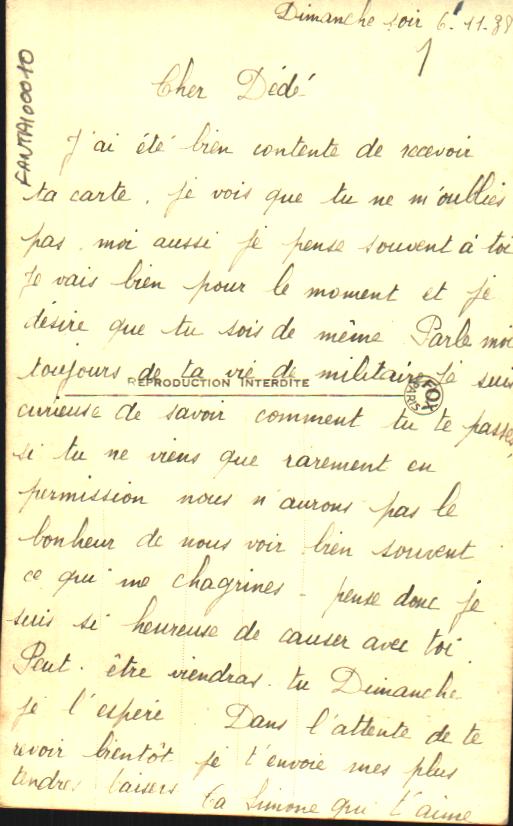 Dimanche soir 6.11.38
Cher Dédé
J'ai été bien contente de recevoir
ta carte, je vois que tu ne m'oublies
pas, moi aussi je pense souvent à toi
Je vais bien pour le moment et je
désire que tu sois de même Parle moi
toujours de ta vie de militaire Je suis
curieuse de savoir comment tu te passes,
si tu ne viens que rarement en
permission nous n'aurons pas le
bonheur de nous voir bien souvent
ce qui me chagrines - pense donc je
suis si heureuse de causer avec toi.
Peut-être viendras-tu Dimanche
je l'espère. Dans l'attente de te
revoir bientôt je t'envoie mes plus
tendres baisers Ta Simone qui t'aime
REPRODUCTION INTERDITE
FOX
PARIS
FANTAI00010